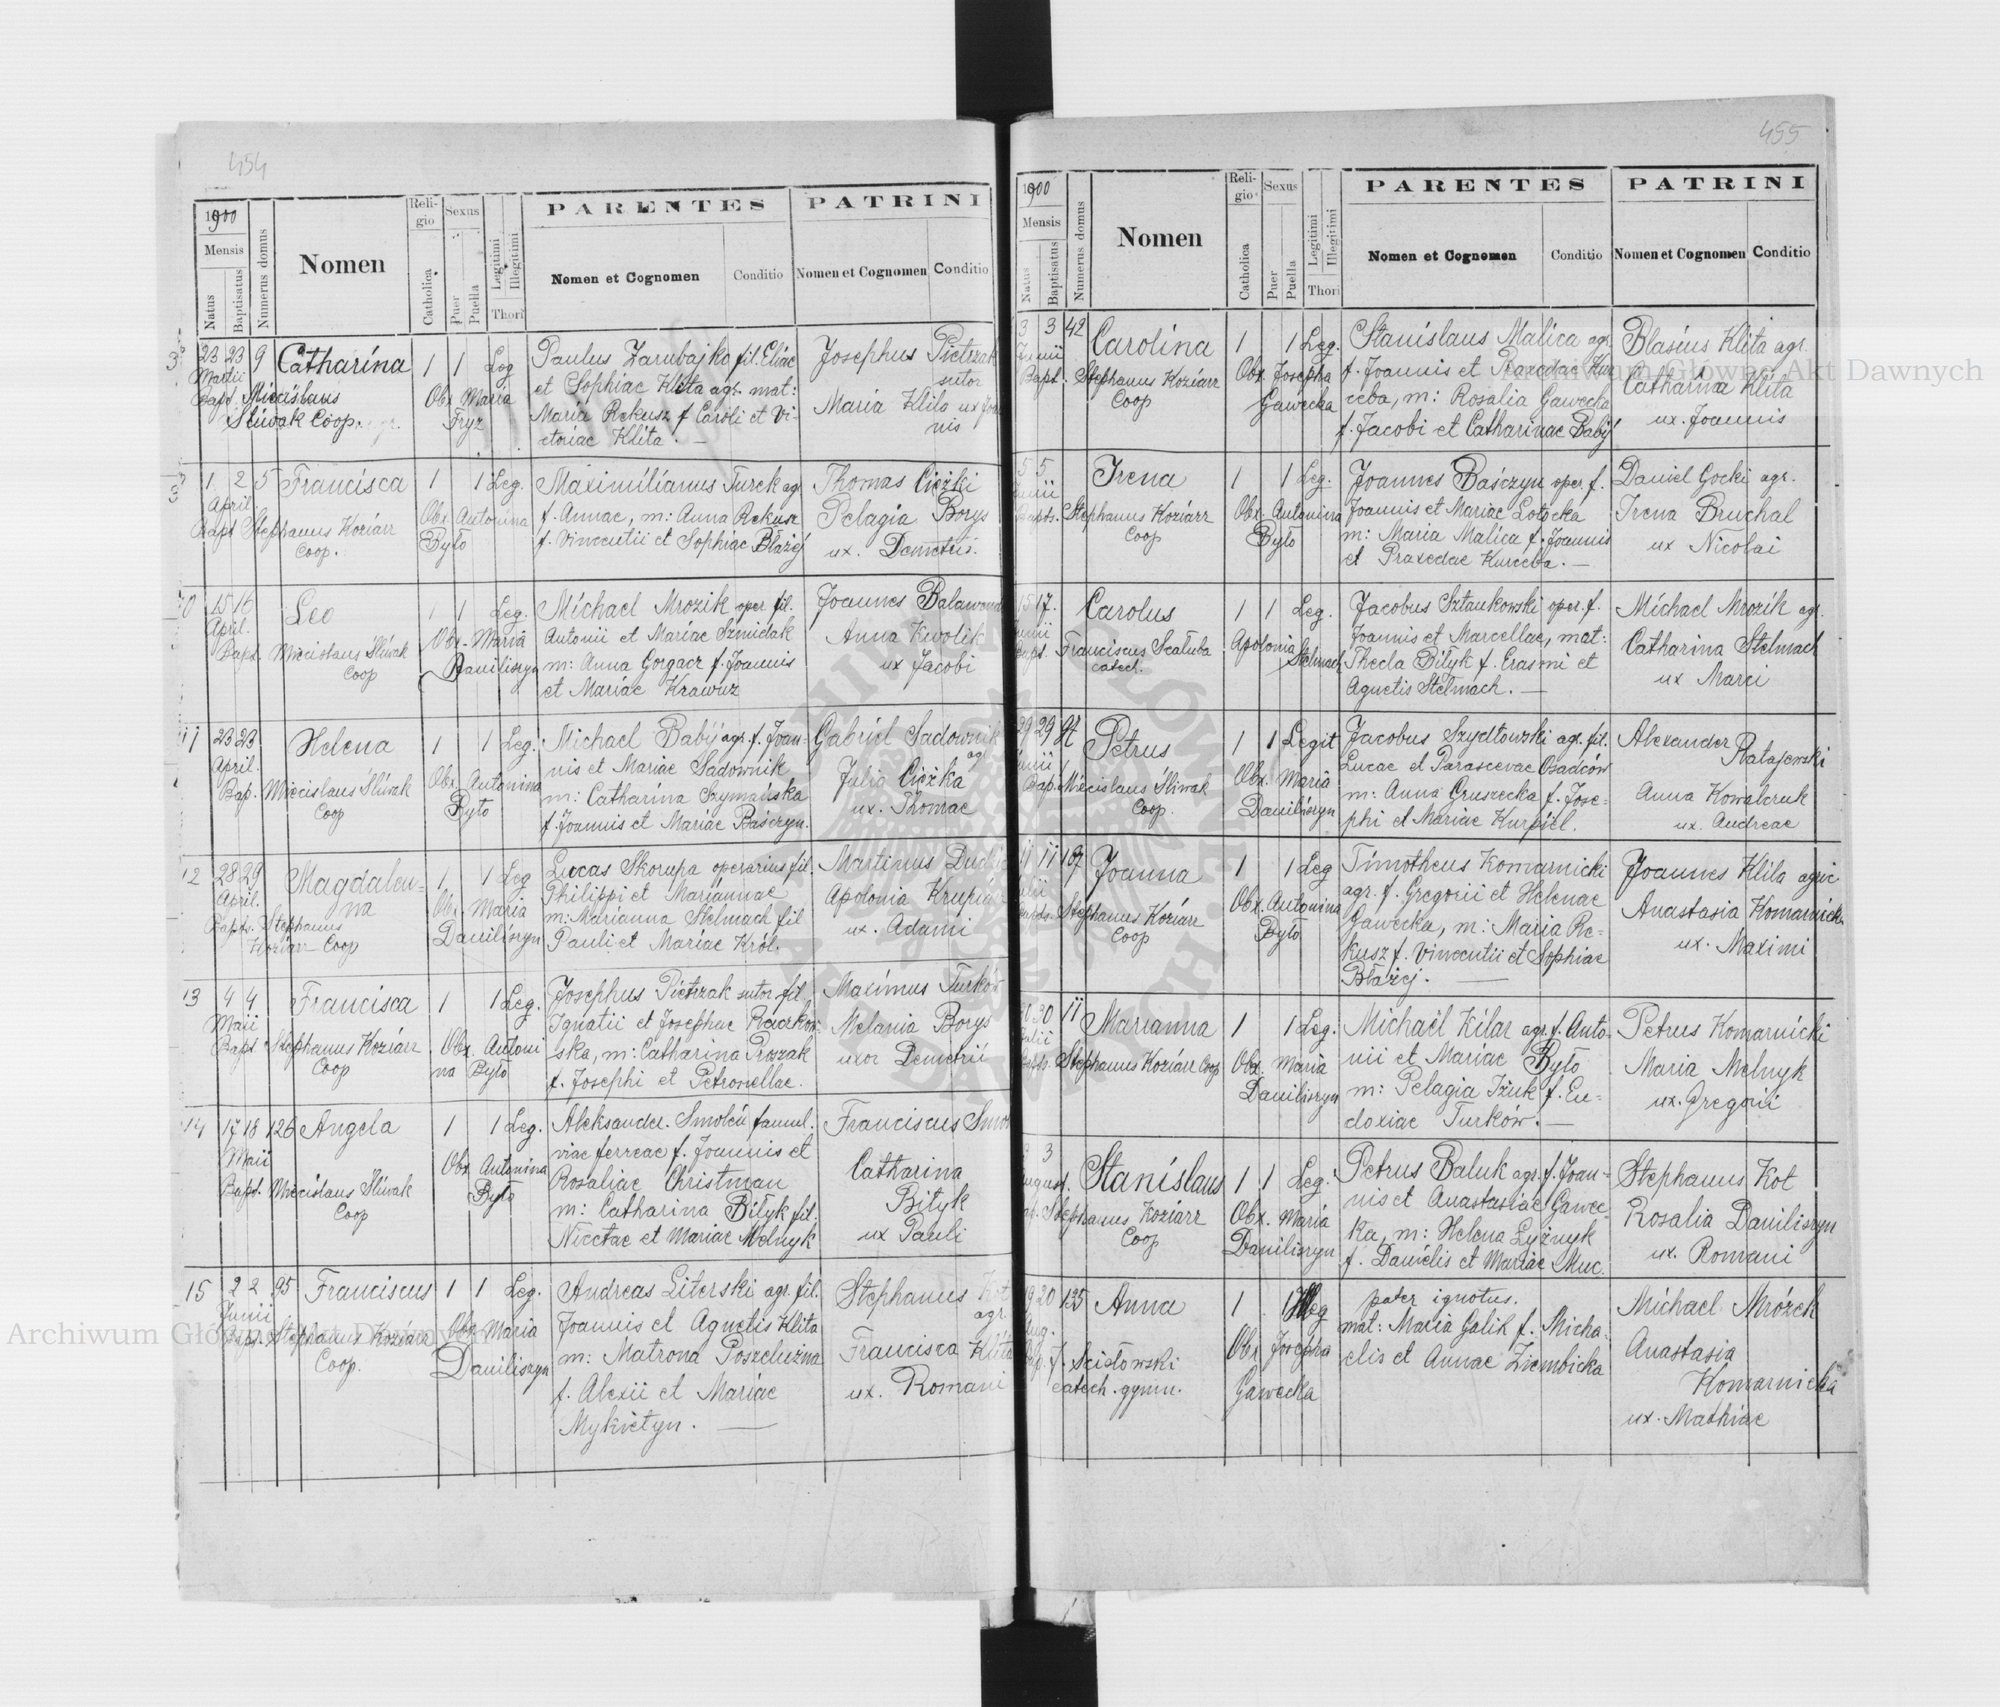 454
1900
Mensis
Natus
Baptisatus
Numerus domus
Nomen
Religio
Catholica
Sexus
Puer
Puella
Legitimi
Illegitimi
Thori
PARENTES
Nomen et Cognomen
Conditio
PATRINI
Nomen et Cognomen
Conditio
23 23 9 Catharina 1 1 Leg
Martii
Bapt. Miecislaus
Śliwak Coop.
Obx Maria
Fryz
Paulus Zarubajko fil. Eliae
et Sophiae Klita agr. mat:
Maria Rekusz f Caroli et Vi-
ctoriae Klita. —
Josephus Pietrzak
sutor
Maria Klita ux Joan
nis
1 2 5 Francisca 1 1 Leg.
April
Bapt Stephanus Koziarz
Coop.
Obx Antonina
Byto
Maximilianus Turek agr
f. Annae, m: Anna Rekusz
f. Vincentii et Sophiae Błażej
Thomas Ciężki
Pelagia Borys
ux. Demetrii.
15 16 Leo 1 1 Leg.
April.
Bapt. Miecislaus Śliwak
Coop
Obx. Maria
Daniliszyn
Michael Mrozik oper fil.
Antonii et Mariae Szmidak
m: Anna Gorgacz f. Joannis
et Mariae Krawuz
Joannes Balawend
Anna Kwolik
ux Jacobi
11 23 23 Helena 1 1 Leg.
April.
Bap. Miecislaus Śliwak
Coop
Obx. Antonina
Byto
Michael Babij agr. f. Joan-
nis et Mariae Sadownik
m: Catharina Szymańska
f. Joannis et Mariae Baśczyn.
Gabriel Sadownik
agr
Julia Ciężka
ux. Thomae
12 28 29 Magdalen- 1 1 Leg
April. na
Bapts. Stephanus
Koziarz Coop
Obx. Maria
Daniliszyn
Lucas Skorupa operarius fil
Philippi et Mariannae
m: Marianna Stelmach fil
Pauli et Mariae Król.
Martinus
Apolonia Krupia
ux. Adami
13 4 4 Francisca 1 1 Leg.
Maii
Bapt. Stephanus Koziarz
Coop
Obx. Antoni
na Byto
Josephus Pietrzak sutor fil
Ignatii et Josephae Raczkow-
ska, m: Catharina Proszak
f. Josephi et Petronellae.
Maximus Turków
Melania Borys
uxor Demetrii
14 17 18 126 Angela 1 1 Leg.
Maii
Bapt. Miecislaus Śliwak
Coop
Obx. Antonina
Byto
Aleksander. Smoleń famul.
viae ferreae f. Joannis et
Rosaliae Christman
m: Catharina Biłyk fil.
Nicetae et Mariae Melnyk
Franciscus Smol
Catharina
Bityk
ux Pauli
15 2 2 95 Franciscus 1 1 Leg.
Junii
Bapt. Stephanus Koziarz
Coop.
Obx Maria
Daniliszyn
Andreas Literski agr. fil.
Joannis et Agnetis Klita
m: Matrona Poszeluźna
f. Alexii et Mariae
Mykietyn. —
Stephanus Kot
agr
Francisca Klita
ux. Romani
455
1900
Mensis
Natus
Baptisatus
Numerus domus
Nomen
Religio
Catholica
Sexus
Puer
Puella
Legitimi
Illegitimi
Thori
PARENTES
Nomen et Cognomen
Conditio
PATRINI
Nomen et Cognomen
Conditio
3 3 42 Carolina 1 1 Leg.
Junii
Bapt. Stephanus Koziarz
Coop
Obx. Josepha
Gawecka
Stanislaus Malica agr.
f. Joannis et Praxedae Kur
ceba, m: Rosalia Gawecka
f. Jacobi et Catharinae Babij
Blasius Klita agr.
Catharina Klita
ux. Joannis
5 5 Irena 1 1 Leg.
Junii
Bapts. Stephanus Koziarz
Coop
Obx. Antonina
Byto
Joannes Baśczyn oper f.
Joannis et Mariae Łotocka
m: Maria Malica f. Joannis
et Praxedae Kurceba. —
Daniel Gocki agr.
Irena Bruchal
ux Nicolai
15 17. Carolus 1 1 Leg.
Junii
Bapt. Franciscus Scałuba
catech.
Apolonia
Stelmach
Jacobus Sztankowski oper. f.
Joannis et Marcellae, mat:
Thecla Biłyk f. Erasmi et
Agnetis Stelmach. —
Michael Mrozik agr.
Catharina Stelmach
ux Marci
29 29 Petrus 1 1 Legit
Junii
Bap. Miecislaus Śliwak
Coop.
Obx. Maria
Daniliszyn
Jacobus Szydłowski agr. fil.
Lucae et Parascevae Osadców
m: Anna Gruszecka f. Jose-
phi et Mariae Kurpiel.
Alexander
Ratajewski
Anna Kowalczuk
ux. Andreae
11 11 107 Joanna 1 1 Leg
Julii
Bapts. Stephanus Koziarz
Coop
Obx. Antonina
Byto
Timotheus Komarnicki
agr. f. Gregorii et Helenae
Gawecka, m: Maria Re-
kusz f. Vincentii et Sophiae
Błażej. —
Joannes Klita agric
Anastasia Komarnicka
ux. Maximi
20 11 Marianna 1 1 Leg.
Julii
Bapts. Stephanus Koziarz Coop
Obx. Maria
Daniliszyn
Michaël Kilar agr. f. Anto-
nii et Mariae Byto
m: Pelagia Iżuk f. Eu-
doxiae Turków. —
Petrus Komarnicki
Maria Melnyk
ux. Gregorii
3 Stanislaus 1 1 Leg.
August.
Stephanus Koziarz
Coop
Obx. Maria
Daniliszyn
Petrus Baluk agr. f. Joan-
nis et Anastasiae Gawec-
ka, m: Helena Łyżnyk
f. Danielis et Mariae Muc.
Stephanus Kot
Rosalia Daniliszyn
ux. Romani
19 20 135 Anna 1 1 Illeg
Aug.
Bap. J. Scisłowski
catech. gymn.
Obx Josepha
Gawecka
pater ignotus.
mat: Maria Galik f. Micha-
elis et Annae Ziembicka
Michael Mrózek
Anastasia
Komarnicka
ux. Mathiae
Archiwum Główne Akt Dawnych
Archiwum Główne Akt Dawnych